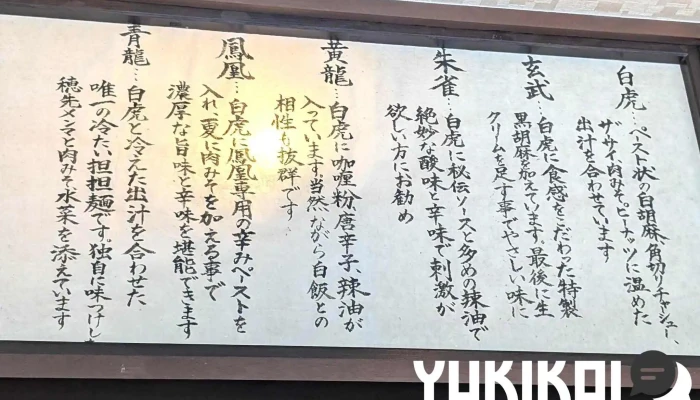 白虎…ペースト状の白胡麻、角切りチャーシュー、
ザーサイ、肉みそ、ピーナッツに温めた
出汁を合わせています
玄武…白虎に食感をこだわった特製
黒胡麻を加えています。最後に生
クリームを足す事でやさしい味に
朱雀…白虎に秘伝ソースと多めの辣油で
絶妙な酸味と辛味で刺激が
欲しい方にお勧め
黄龍…白虎に咖喱粉、唐辛子、辣油が
入っています。当然ながら白飯との
相性も抜群です…
鳳凰…白虎に鳳凰専用の辛みペーストを
入れ、更に肉みそを加える事で
濃厚な旨味と辛味を堪能できます
青龍…白虎と冷えた出汁を合わせた
唯一の冷たい担担麺です。独自に味つけした
穂先メンマと肉みそ水菜を添えています
YUKIKAI